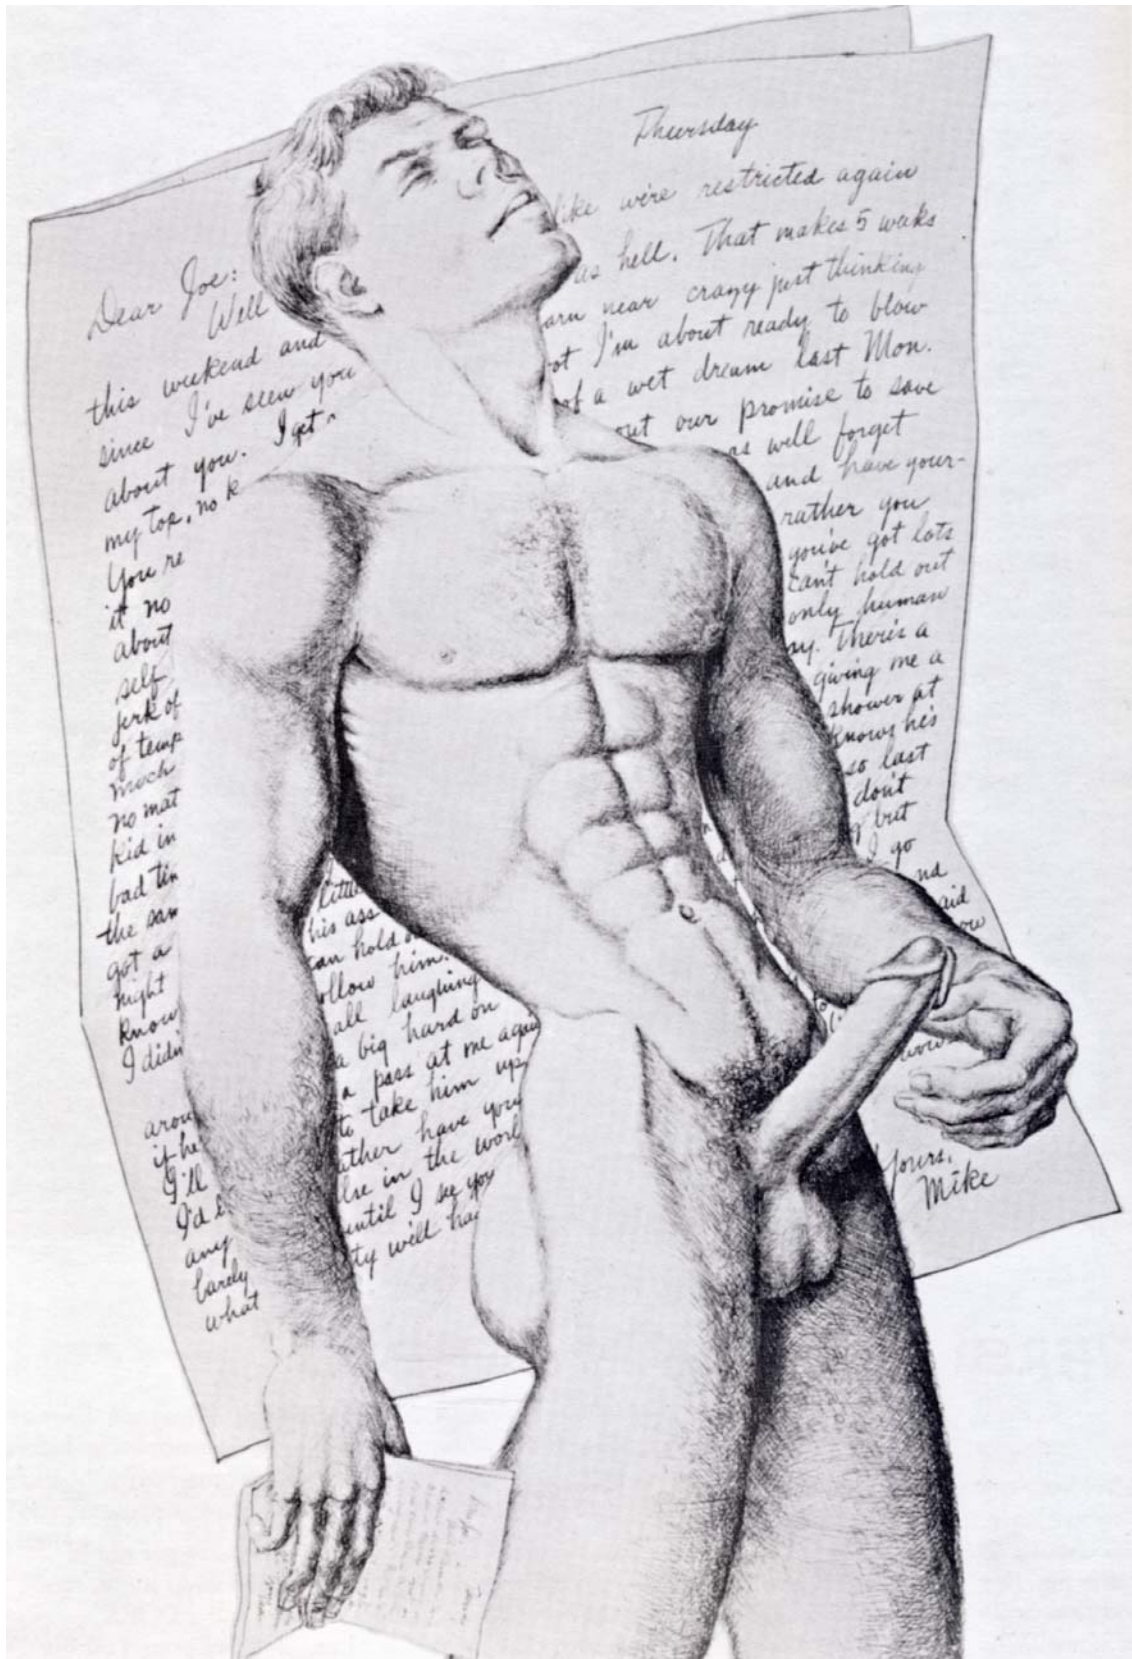 Thursday
Dear Joe:
Well like we're restricted again
this weekend and as hell. That makes 5 weeks
since I've seen you arn near crazy just thinking
about you. I get ot I'm about ready to blow
my top, no k of a wet dream last Mon.
You re out our promise to save
it no as well forget
about and have your-
self rather you
jerk of you've got lots
of temp can't hold out
much only human
no mat ay. There's a
kid in giving me a
bad tim shower at
the sam knows he's
got a little so last
night his ass don't
know can hold o but
I didn ollow him. I go
all laughing nd
arou a big hard on aid
if he a pass at me again
I'll to take him up
I'd ather have you
any lse in the worl
barely until I see you
what ty we'll ha
Yours,
Mike